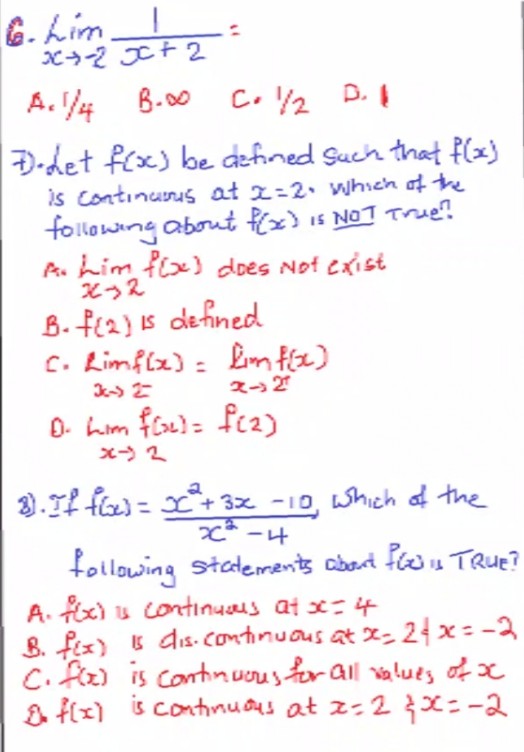 6. Lim 1/x+2 =
x→-2
A. 1/4 B. ∞ C. 1/2 D. 1
7). Let f(x) be defined such that f(x)
is continuous at x=2. Which of the
following about f(x) is NOT True?
A. Lim f(x) does Not exist
x→2
B. f(2) is defined
C. Lim f(x) = Lim f(x)
x→2⁻ x→2⁻
D. Lim f(x) = f(2)
x→2
8). If f(x) = x²+3x-10, which of the
x²-4
following statements about f(x) is TRUE?
A. f(x) is continuous at x=4
B. f(x) is dis.continuous at x=2 & x=-2
C. f(x) is continuous for all values of x
D. f(x) is continuous at x=2 & x=-2